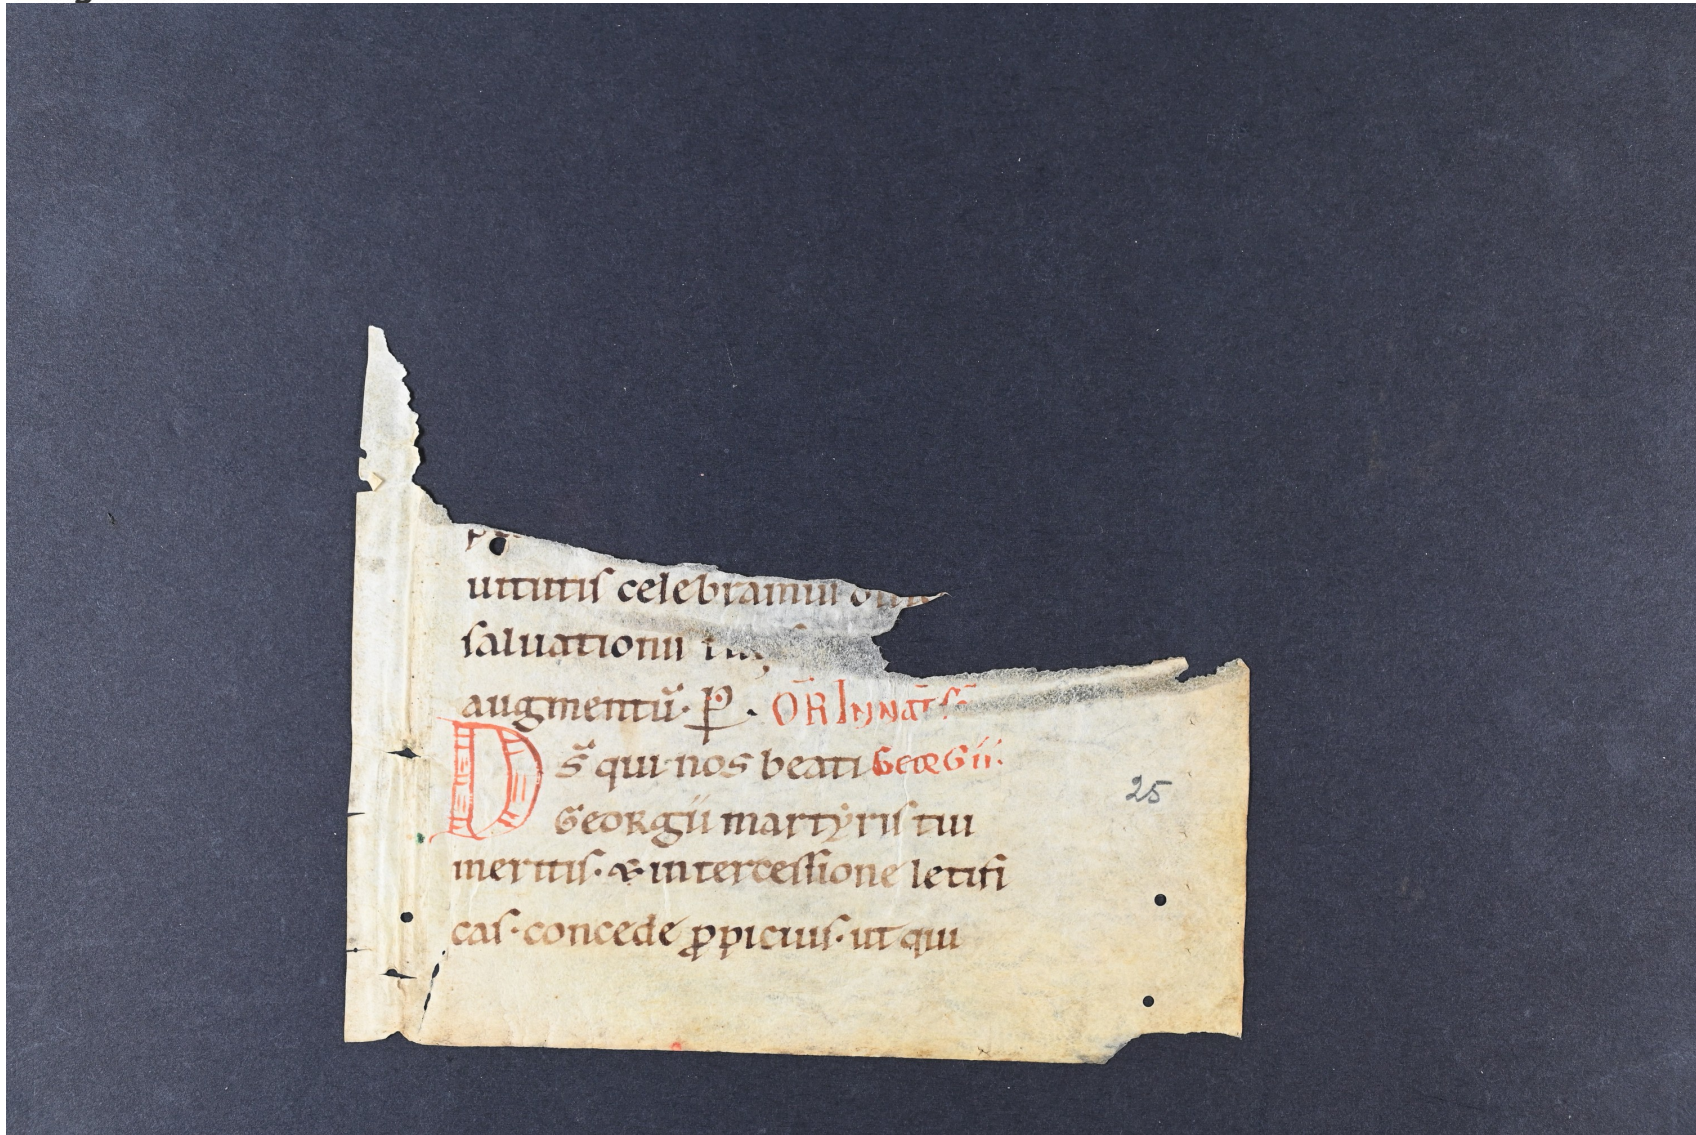 uirtutis celebramus
saluationis
augmentū· P̲ · OR̄ IN NAT̄ SC̄I
DS̄ qui nos beati GeorGii·
GeoRgii martyris tui
meritis· & intercessione letifi
cas· concede ꝓpicius· ut qui
25